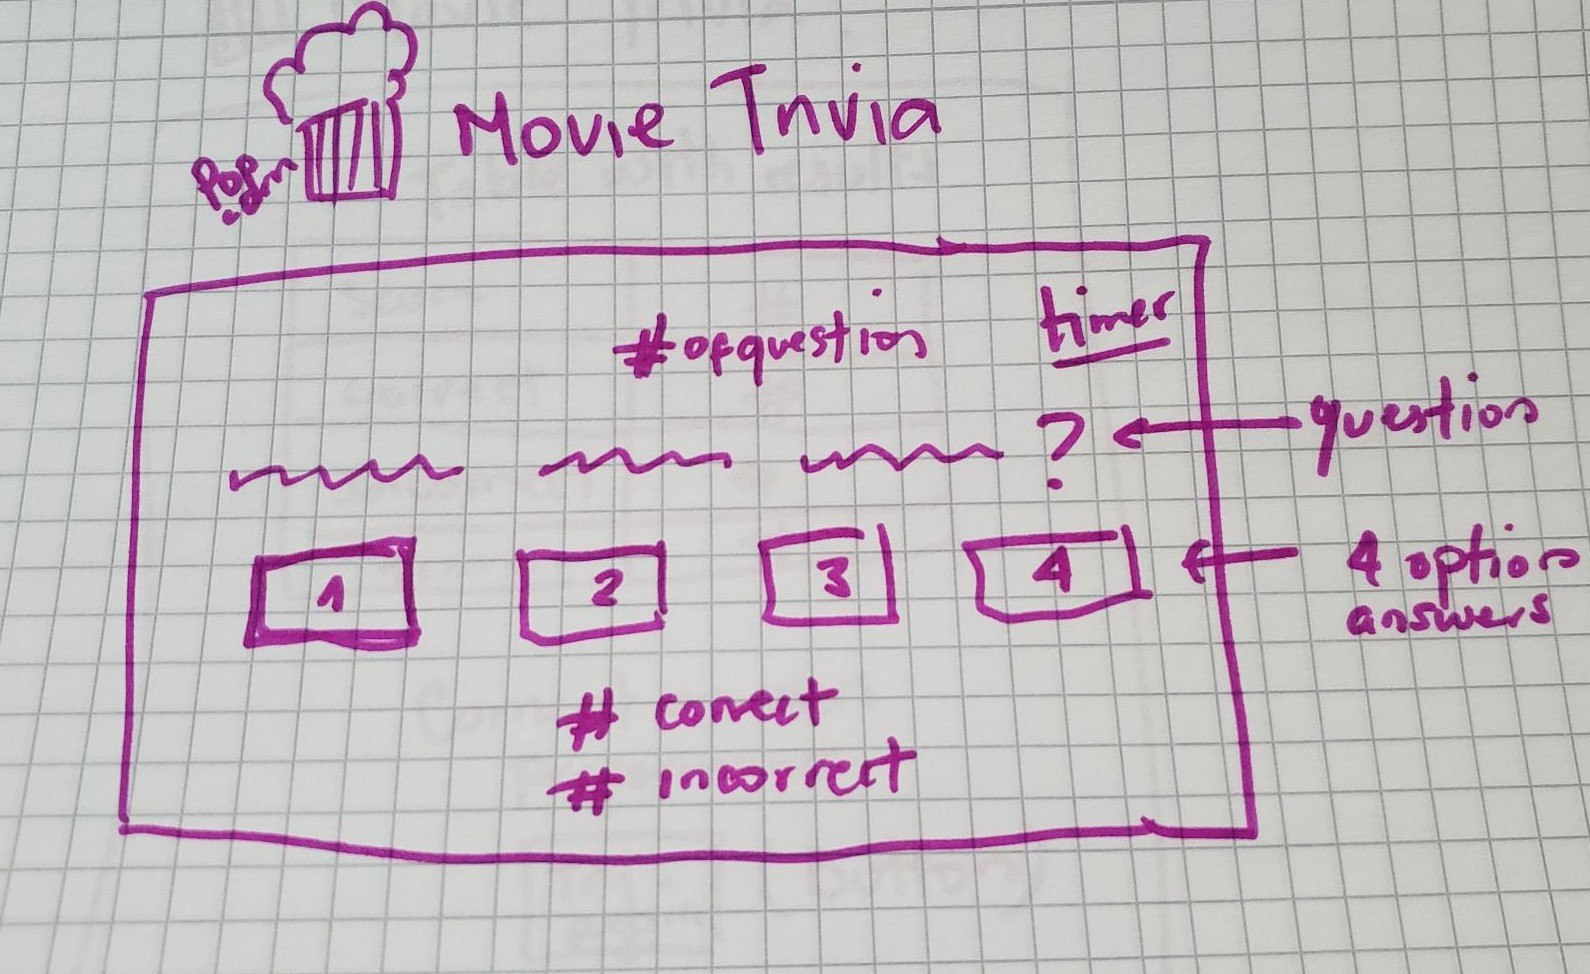 Movie Trivia
# of question
timer
?
question
1
2
3
4
4 option
answers
# correct
# incorrect